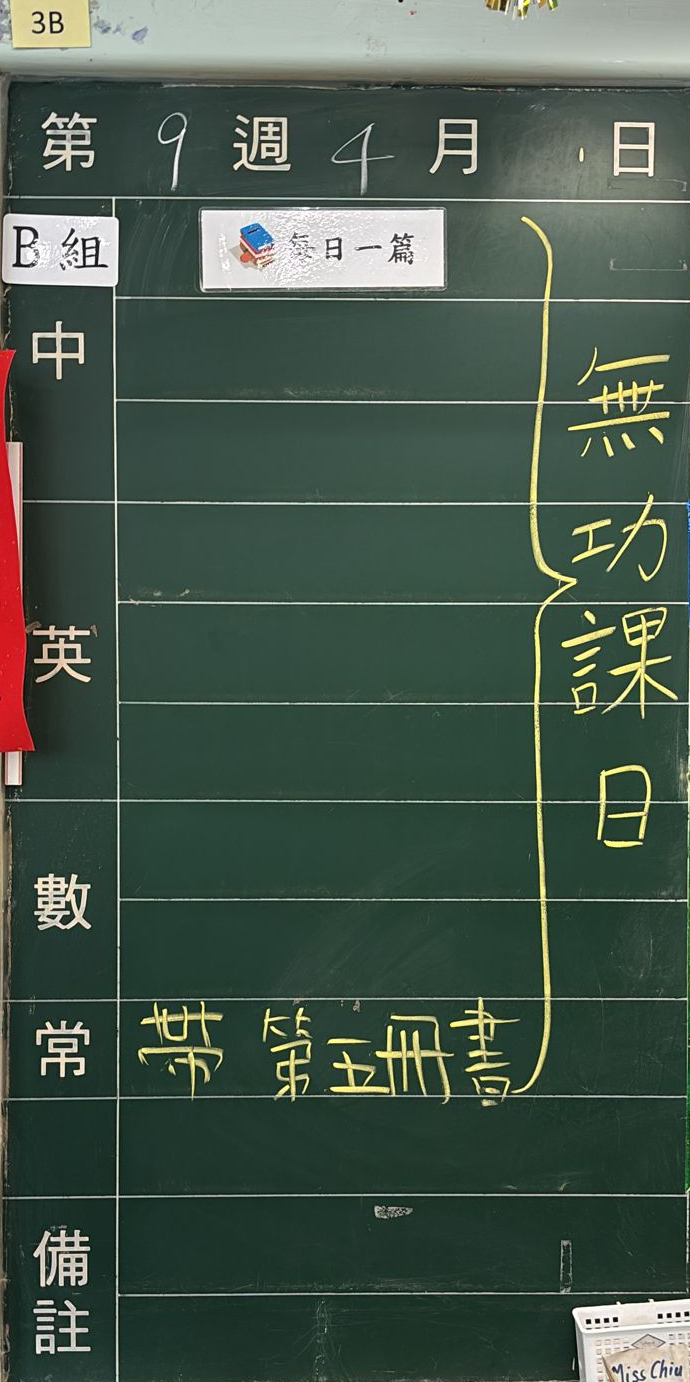 3B
第 9 週 4 月 日
B組
每日一篇
中
英
數
常 帶 第五冊書
無功課日
備註
Miss Chiu